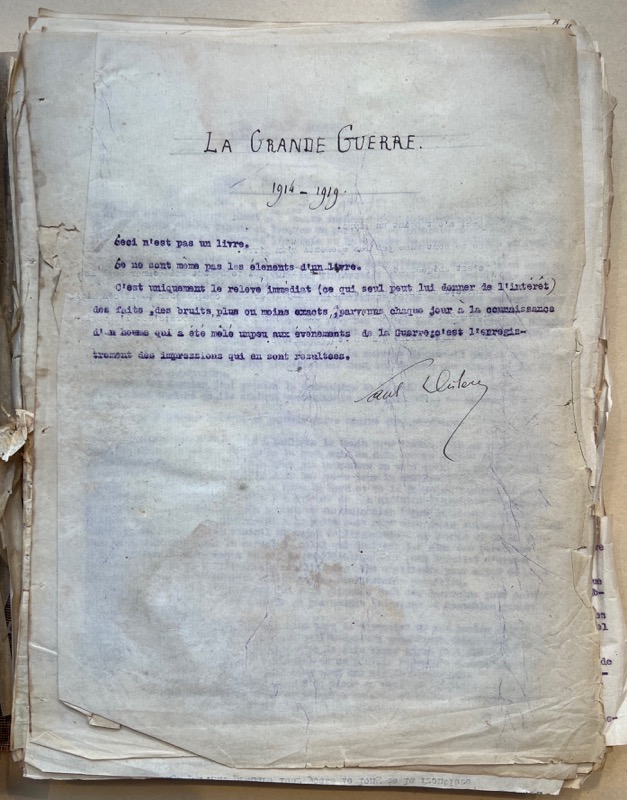 LA GRANDE GUERRE.
1914 - 1919.
Ceci n'est pas un livre.
Ce ne sont même pas les élénents d'un livre.
C'est uniquement le relevé immédiat (ce qui seul peut lui donner de l'intérêt)
des faits ,des bruits,plus ou moins exacts,,parvenus chaque jour à la connaissance
d'un homme qui a été mêlé unpeu aux évènements de la Guerre;c'est l'enregis-
trement des impressions qui en sont résultées.
Paul